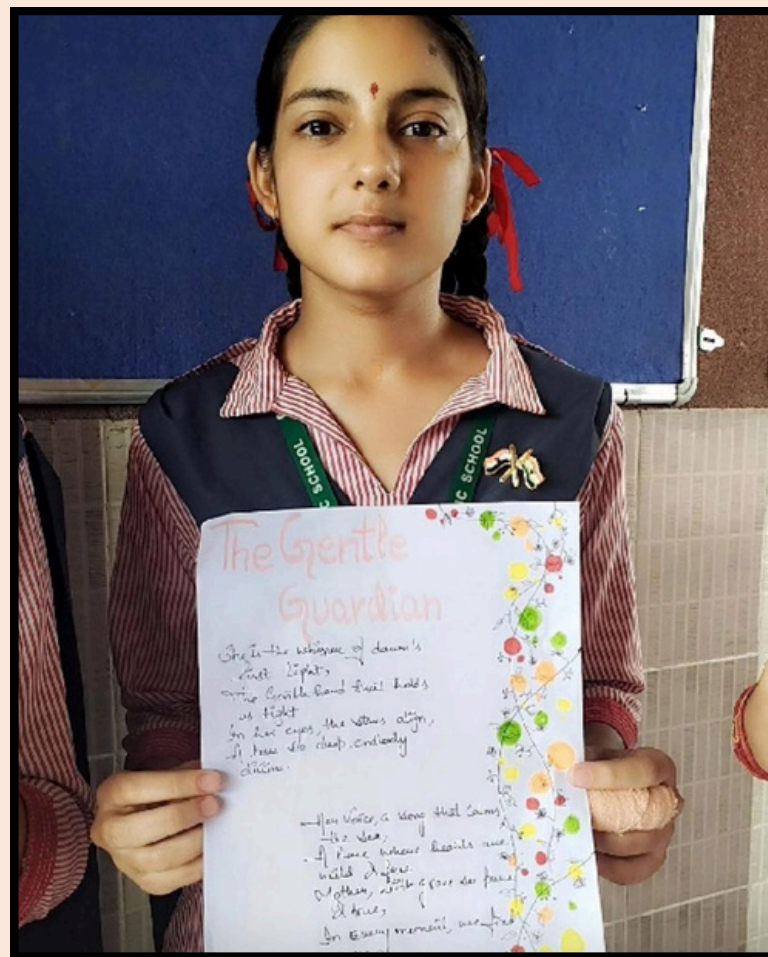 C SCHOOL
IC SCHOOL
The Gentle
Guardian
She is the whisper of dawn's
first light,
The Gentle hand that holds
us tight
In her eyes, the stars align,
A love so deep, endlessly
divine.
Her voice, a song that calms
the sea,
A Place where hearts are
wild & free
Mother, with grace so pure
& true,
In Every moment, we find